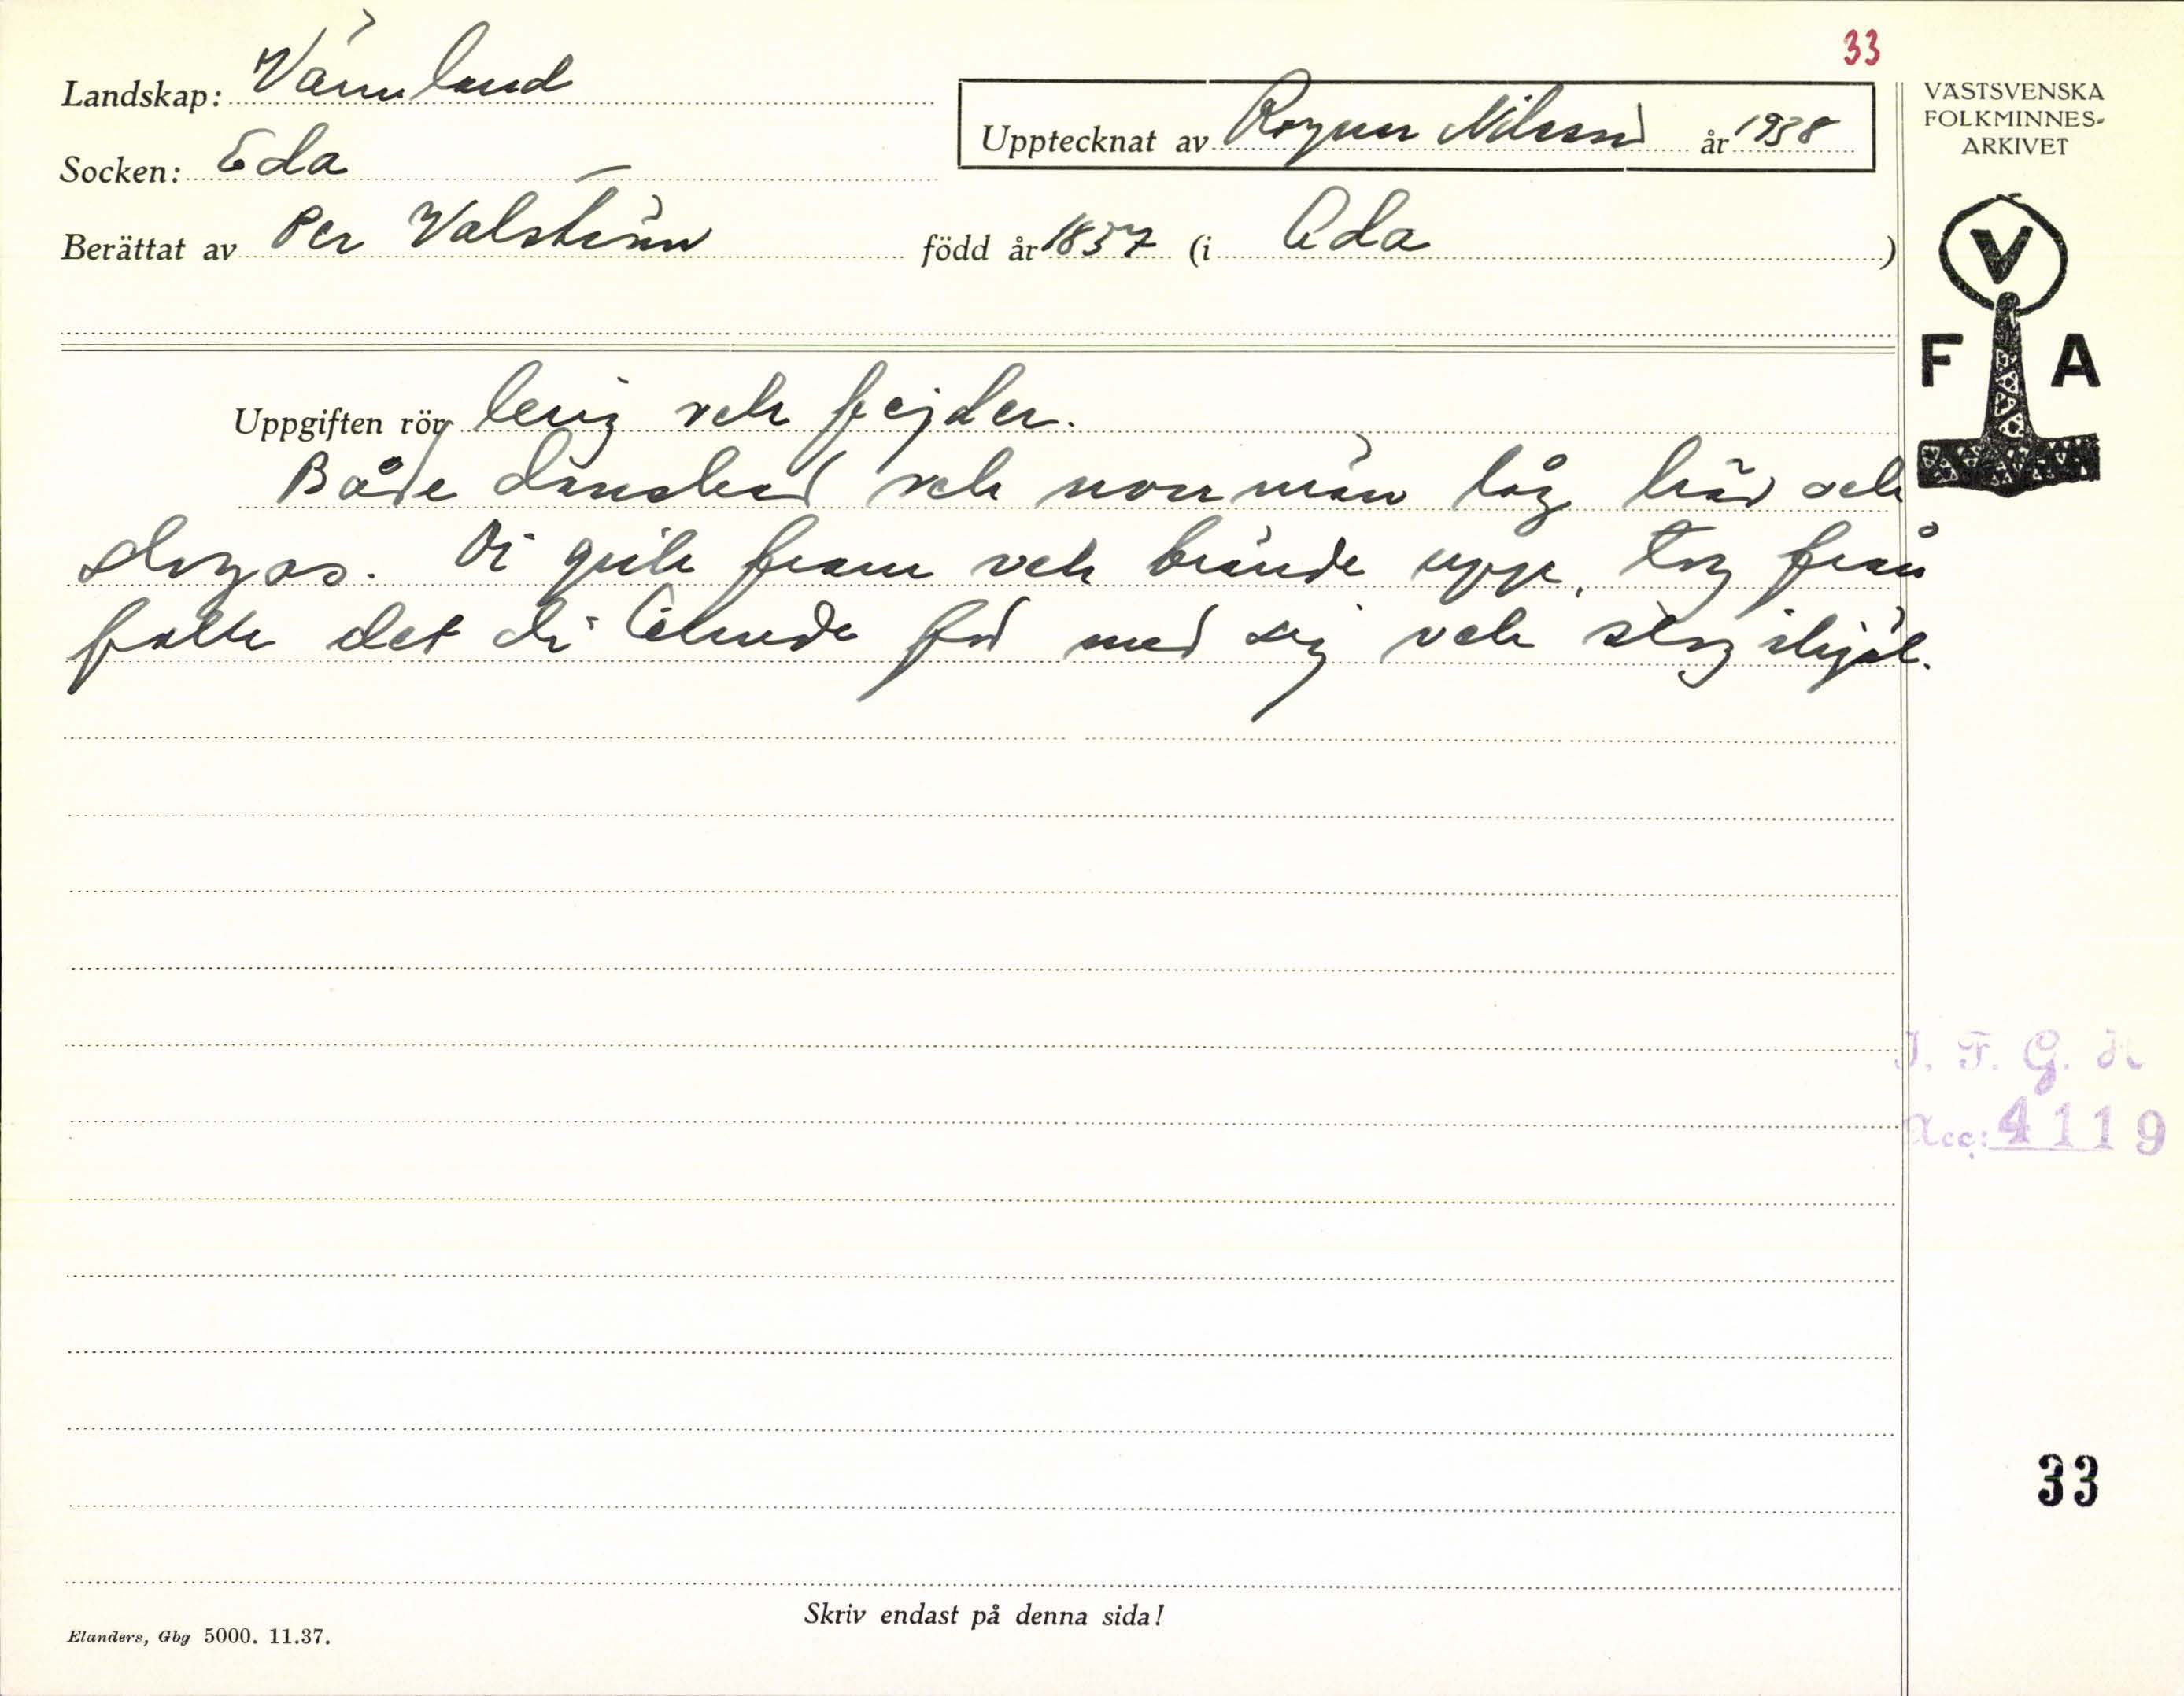 33
Landskap: Värmland
Upptecknat av Ragnar Nilsson år 1938
Socken: Eda
Berättat av Per Valström född år 1857 (i Eda)
VÄSTSVENSKA
FOLKMINNES-
ARKIVET
V
F A
Uppgiften rör krig och fejder.
Både danskar och norrmän låg här och
slogas. Di gick fram och brände upp, tog från
folk det di kunde få med sig och slog ihjäl.
I. F. G. H
Acc: 4119
33
Skriv endast på denna sida!
Elanders, Gbg 5000. 11.37.